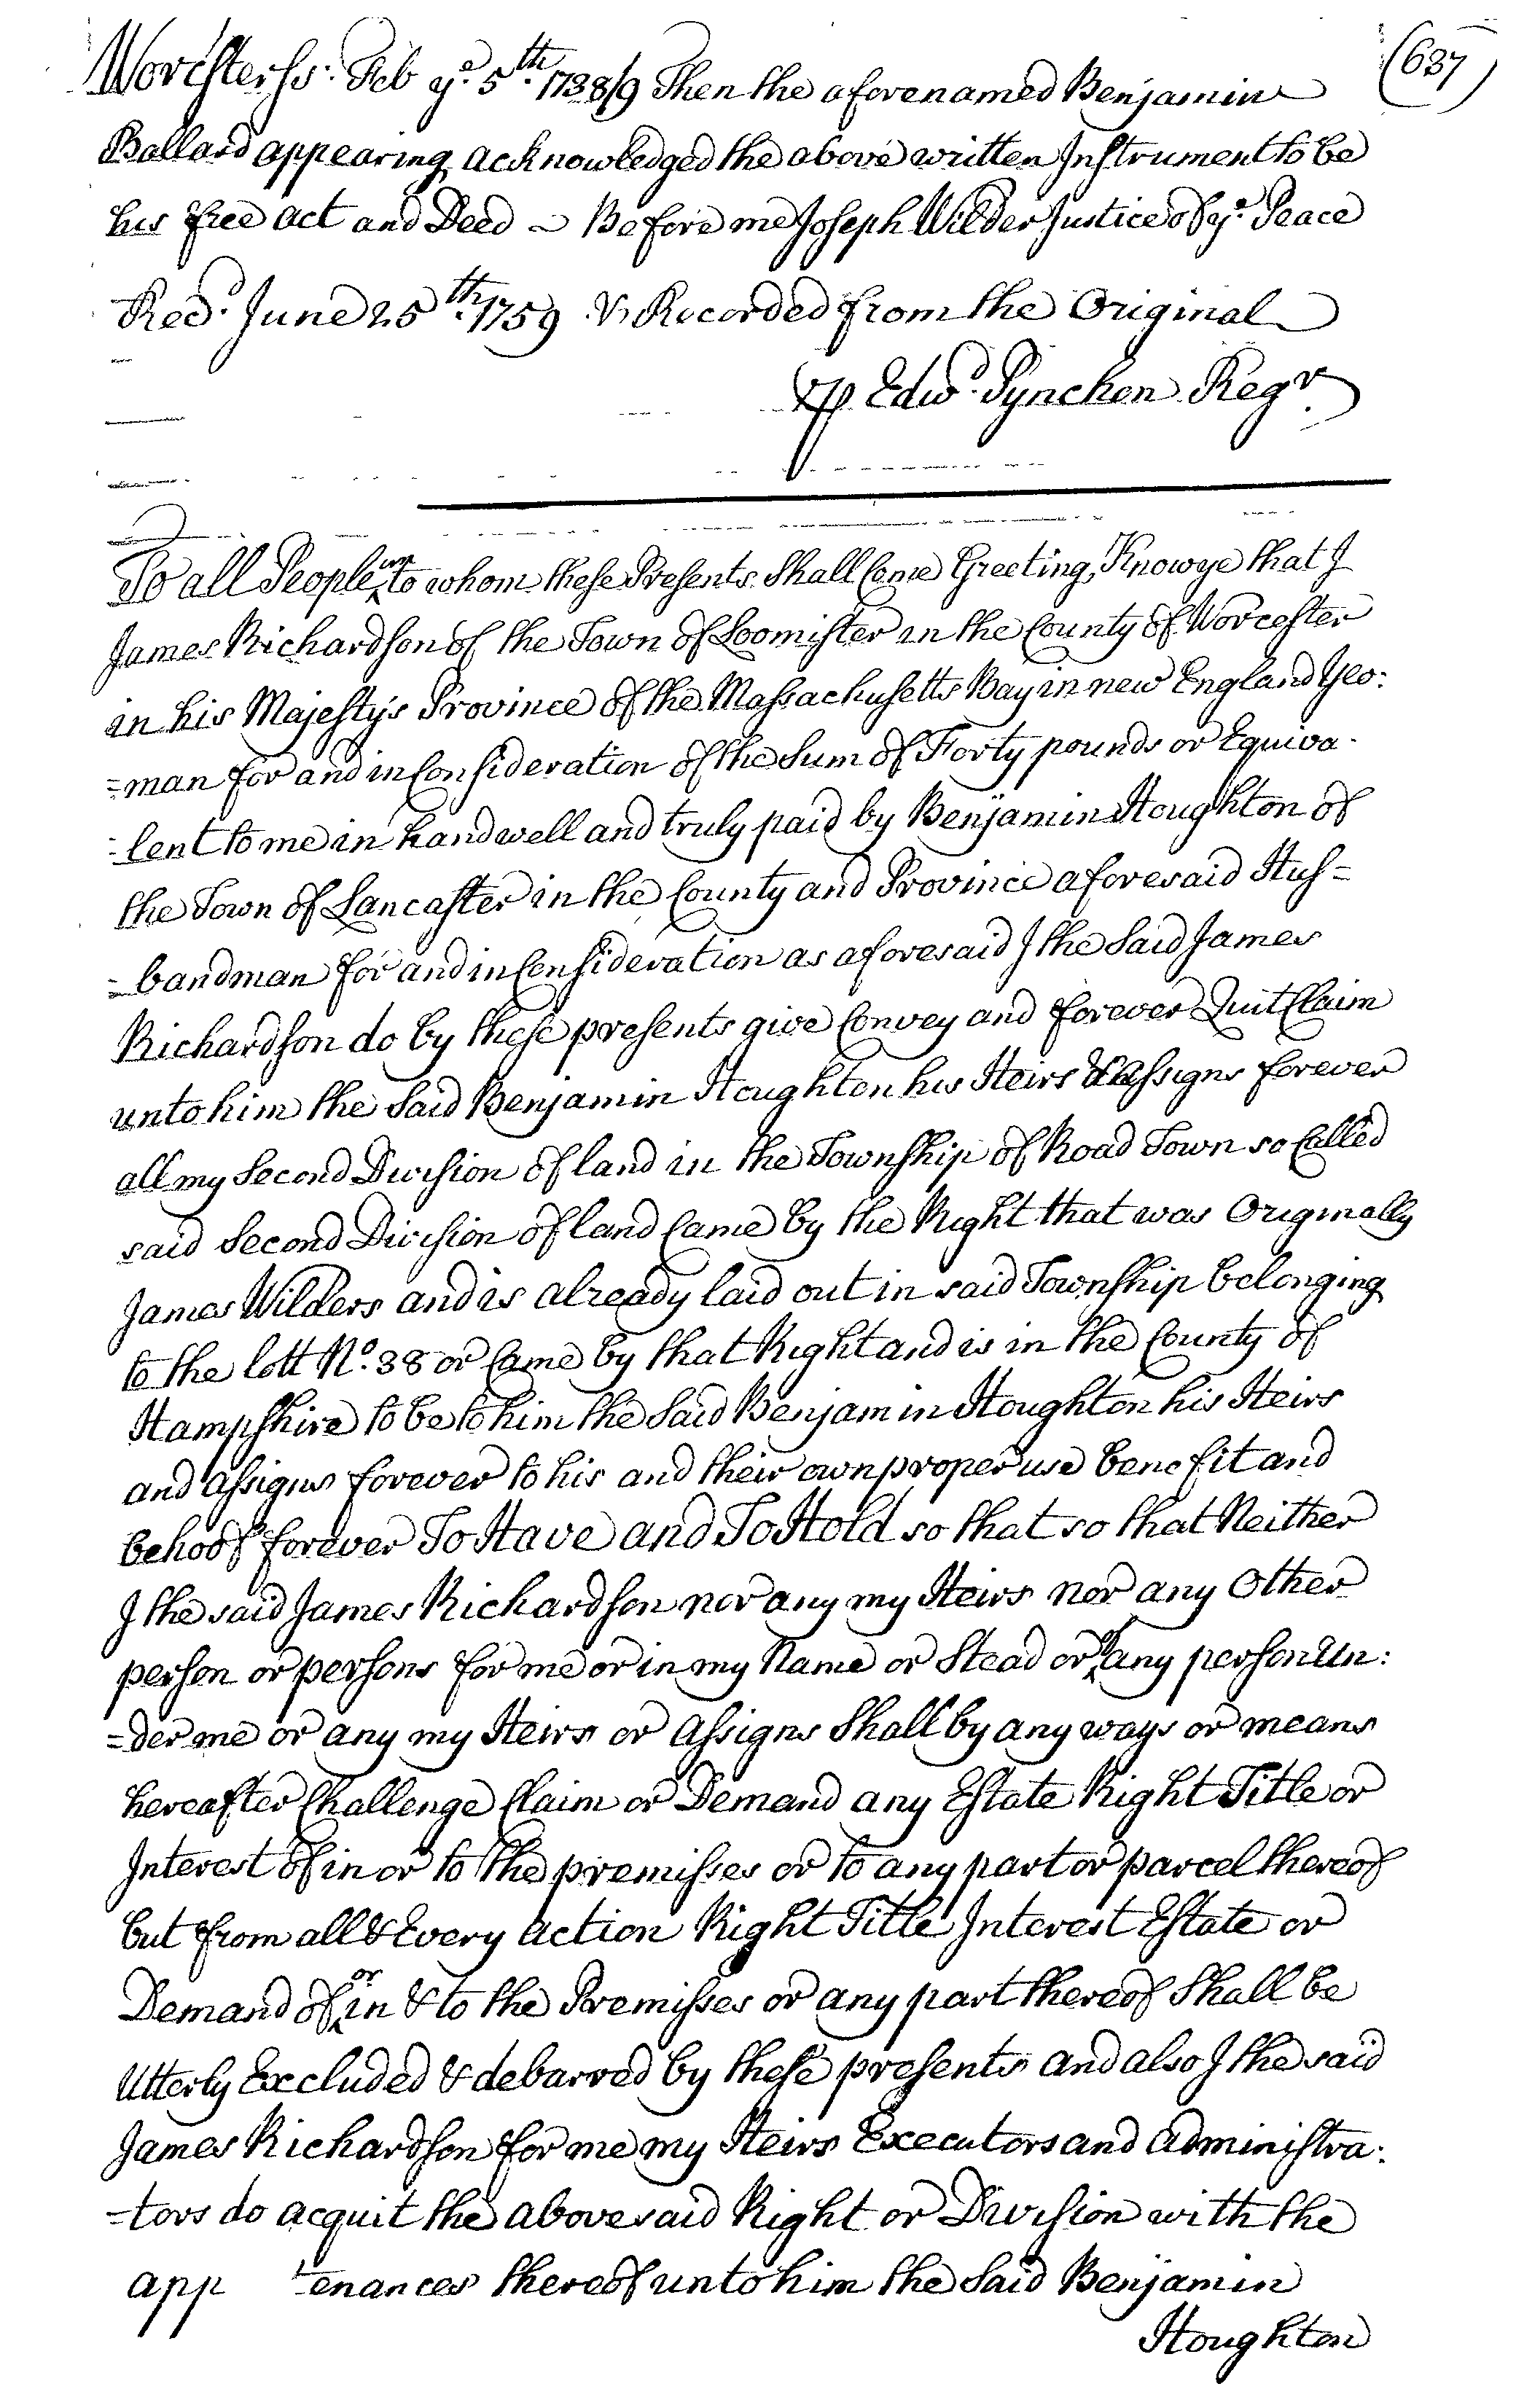 (637)
Worcester ss: Feb ye. 5th. 1738/9 Then the aforenamed Benjamin
Ballard appearing acknowledged the above written Instrument to be
his free act and Deed ~ Before me Joseph Wilder Justice of ye. Peace
Recd. June 25th. 1759 & Recorded from the Original
Edwd. Pynchon Regr.
To all People unto whom these Presents Shall Come Greeting, Know ye that I
James Richardson of the Town of Leominster in the County of Worcester
in his Majestys Province of the Massachusetts Bay in new England Yeo:
=man for and in Consideration of the Sum of Forty pounds or Equiva-
-lent to me in hand well and truly paid by Benjamin Houghton of
the Town of Lancaster in the County and Province aforesaid Hus=
=bandman for and in Consideration as aforesaid I the Said James
Richardson do by these presents give Convey and forever Quit Claim
unto him the Said Benjamin Houghton his Heirs & assigns forever
all my Second Division of land in the Township of Road Town so Called
said Second Division of land Came by the Right that was Originally
James Wilders and is already laid out in said Township belonging
to the lott No. 38 or Came by that Right and is in the County of
Hampshire to be to him the Said Benjamin Houghton his Heirs
and assigns forever to his and their own proper use benefit and
behoof forever To Have and To Hold so that so that Neither
I the said James Richardson nor any my Heirs nor any Other
person or persons for me or in my Name or Stead or of any person Un:
=der me or any my Heirs or assigns Shall by any ways or means
hereafter Challenge Claim or Demand any Estate Right Title or
Interest of in or to the premisses or to any part or parcel thereof
but from all & Every action Right Title Interest Estate or
Demand of or in & to the Premisses or any part thereof Shall be
Utterly Excluded & debarred by these presents and also I the said
James Richardson for me my Heirs Executors and administra:
=tors do acquit the abovesaid Right or Division with the
app tenances thereof unto him the Said Benjamin
Houghton